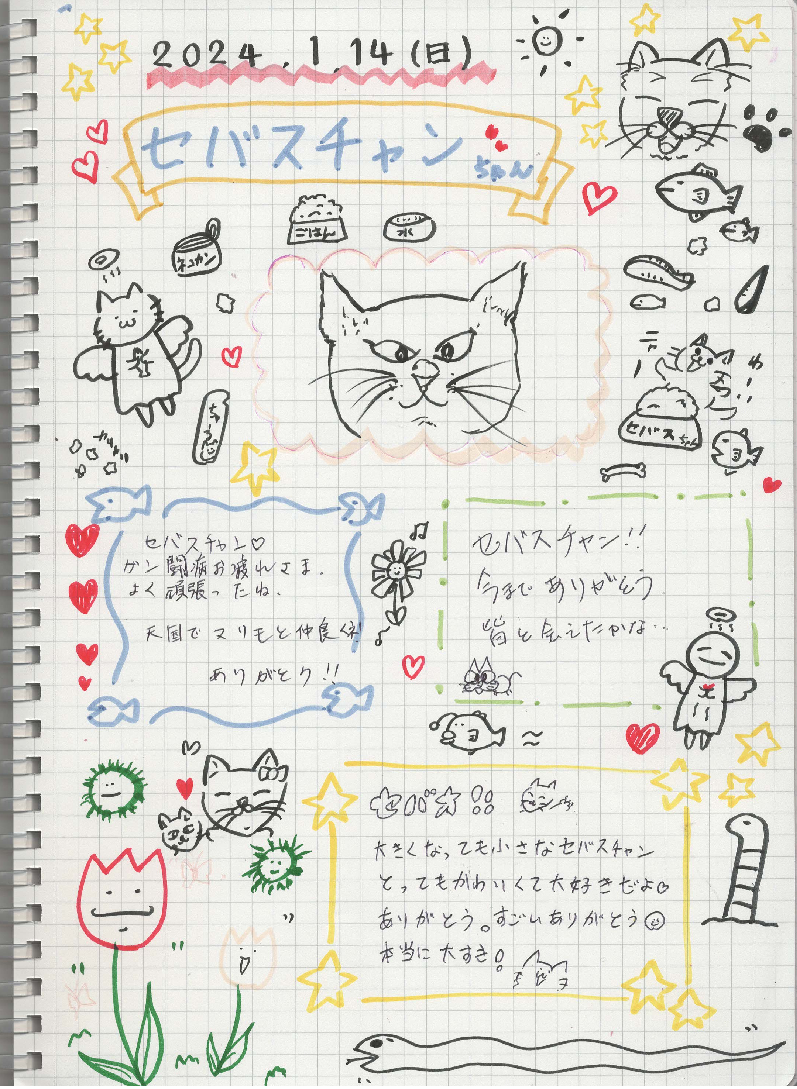 2024.1.14(日)
セバスチャン
ちゃん
ごはん
水
ネコカン
ちゅ〜る
セバスちゃん
セバスチャン♡
ガン闘病お疲れさま.
よく頑張ったね.
天国でマリモと仲良く!
ありがとう!!
セバスチャン!!
今まで ありがとう
皆と会えたかな…
セバス!!
大きくなっても小さなセバスチャン
とってもかわいくて大好きだよ♡
ありがとう。すごいありがとう☺
本当に大すき!